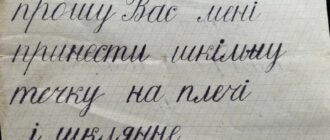 прошу Вас мені
принести шкільну
течку на плечі
і шклянне